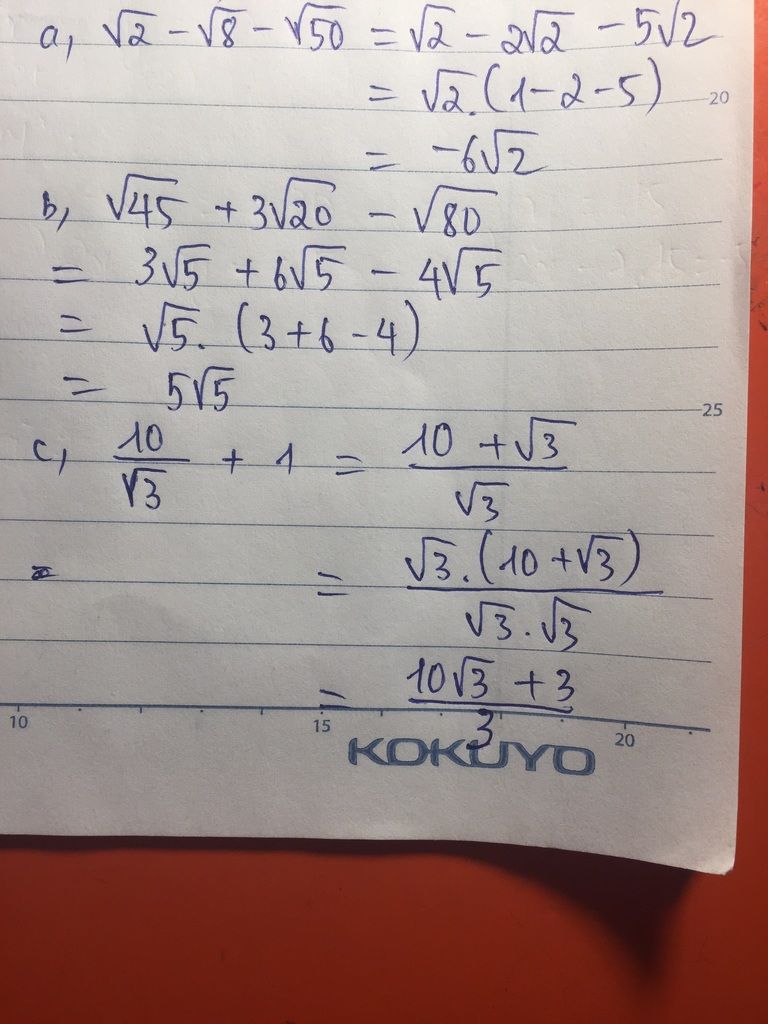 a, √2 - √8 - √50 = √2 - 2√2 - 5√2
= √2.(1-2-5)
20
= -6√2
b, √45 + 3√20 - √80
= 3√5 + 6√5 - 4√5
= √5. (3+6-4)
= 5√5
25
c, 10/√3 + 1 = (10 + √3)/√3
= √3.(10+√3)/(√3.√3)
= (10√3 + 3)/3
10 15 20
KOKUYO